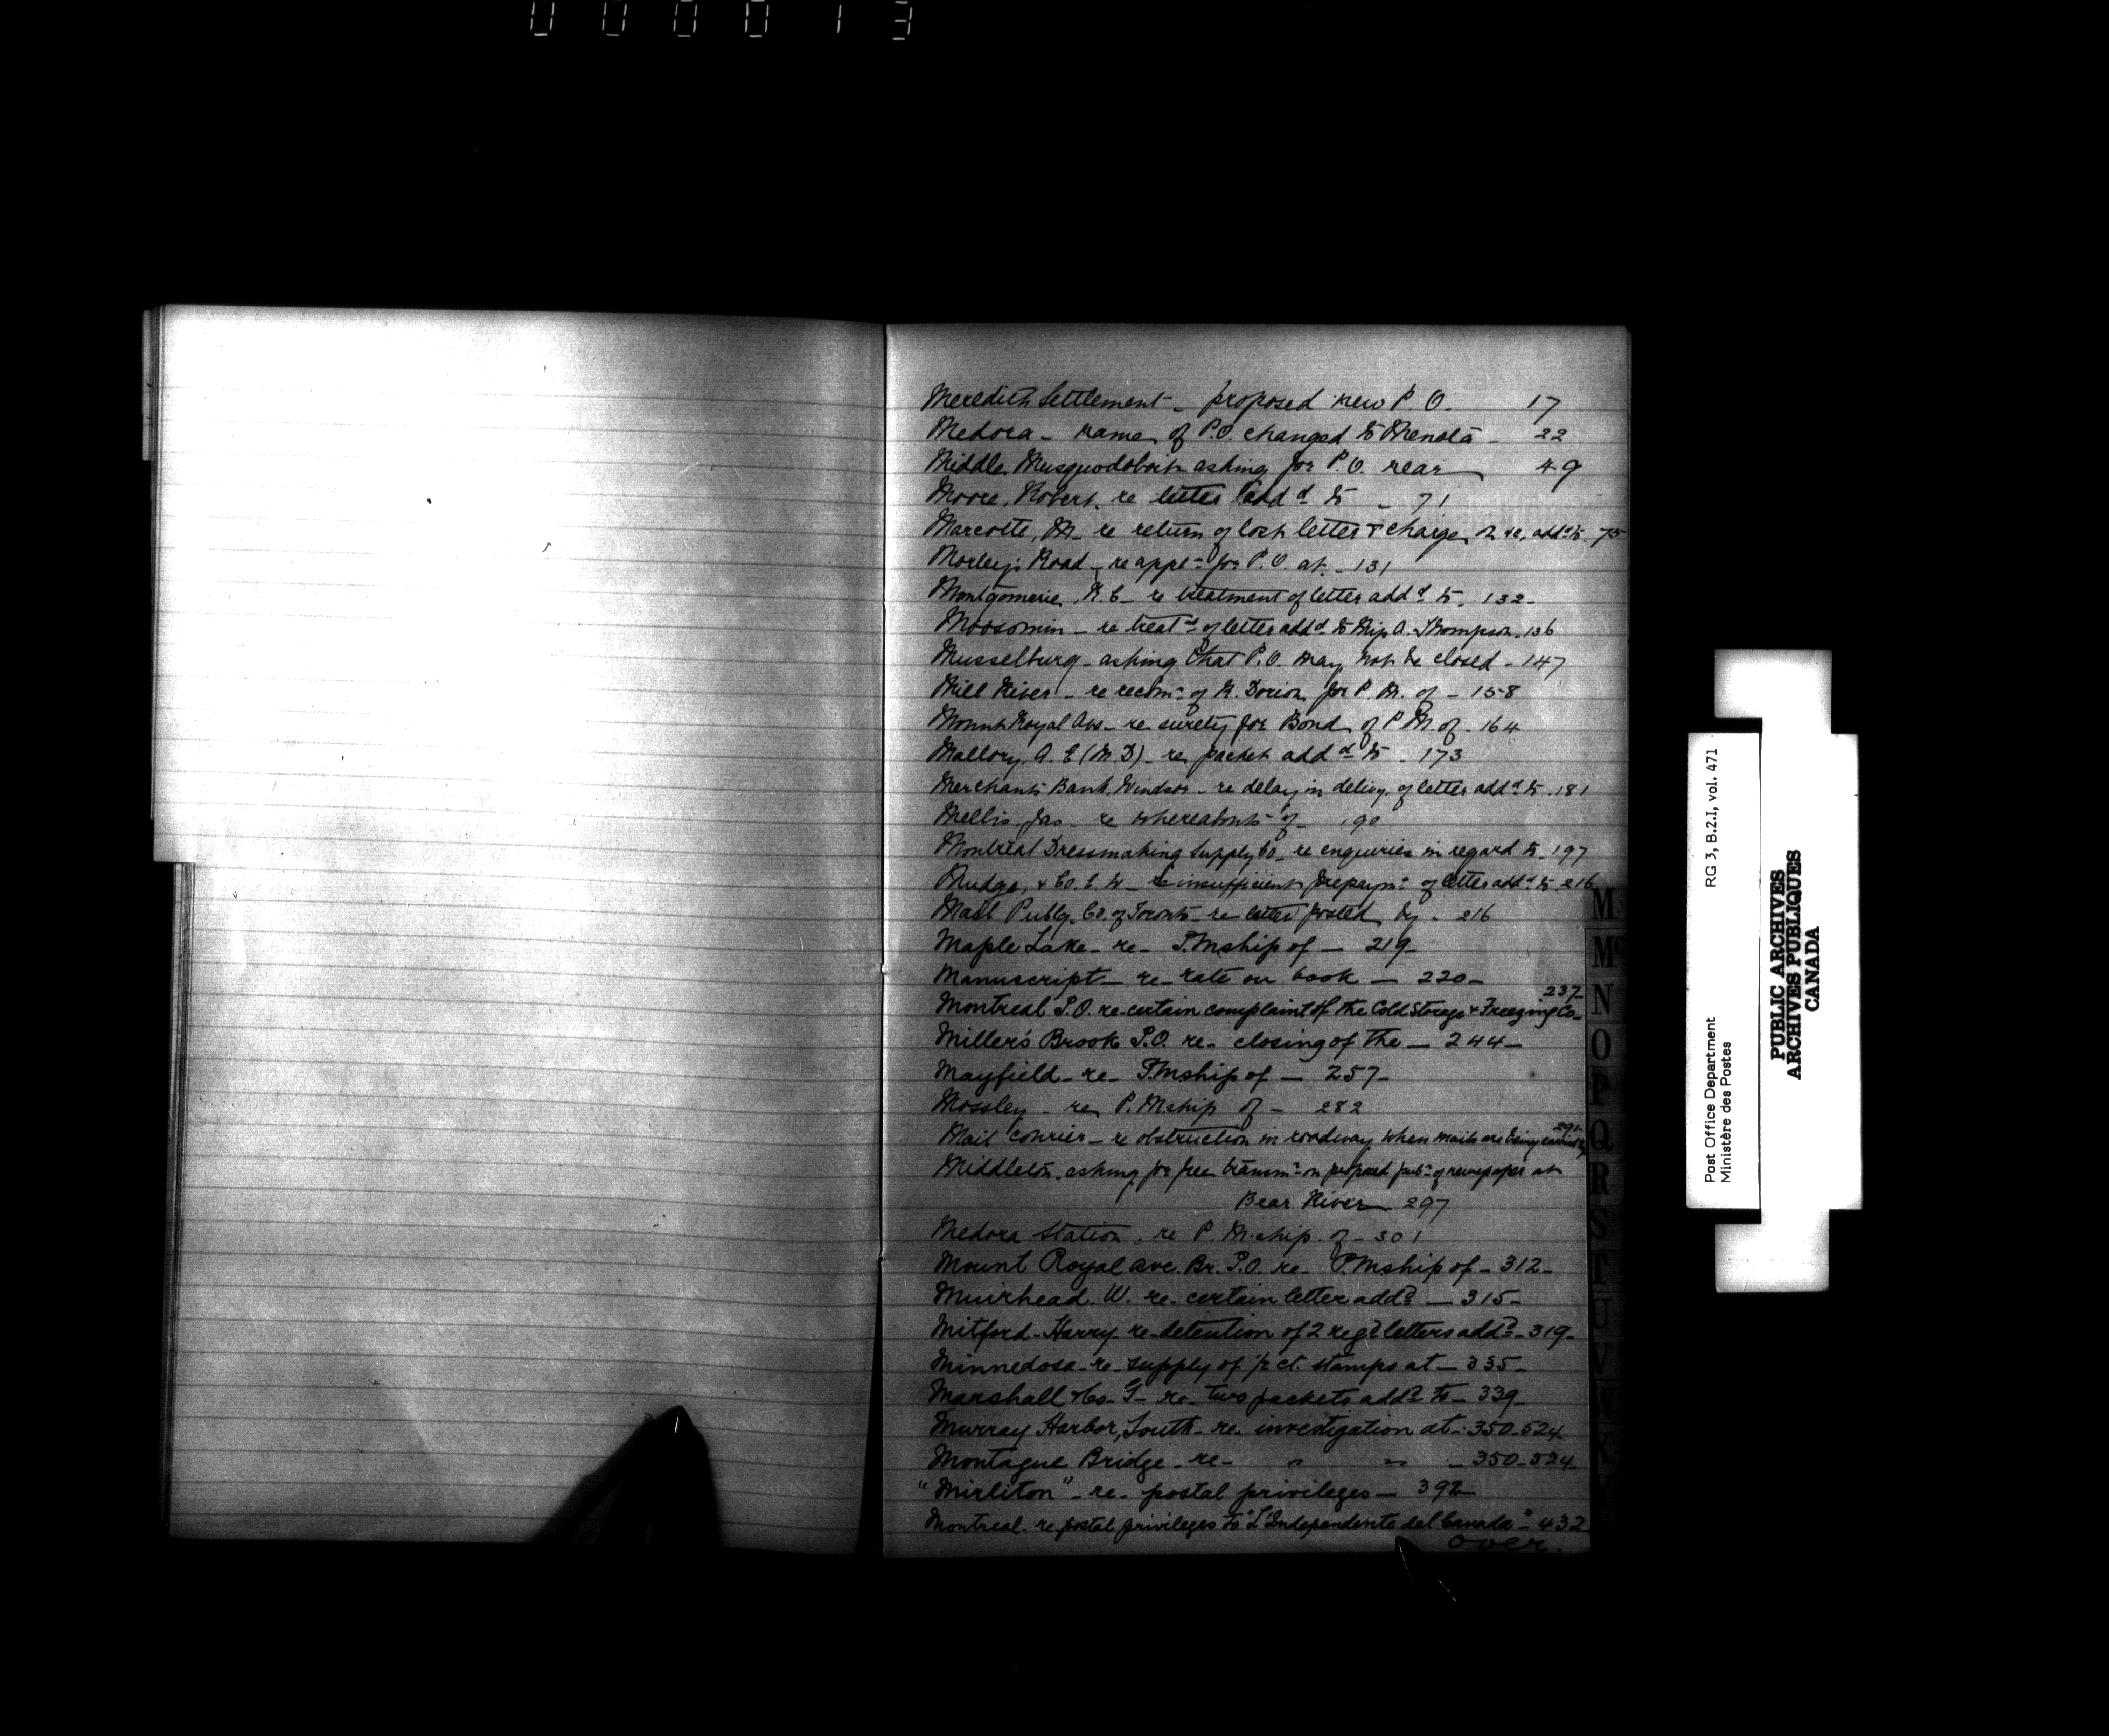 000013
Meredith Settlement - proposed new P.O. 17
Medora - name of P.O. changed to - 22
Middle Musquodoboit asking for P.O. near 49
Moore, Robert. re letter add^d to - 71
Marcotte, M. re return of lost letter & charge on &c, add^d to. 75
Morley's Road - re appl^n for P.O. at - 131
Montgomerie, R. C - re treatment of letter add^d to. 132-
Moosomin - re treat^mt of letter add^d to Miss A. Thompson - 136
Musselburg - asking that P.O. may not be closed - 147
Mill River - re recom^n of R. Dorion for P.M. of - 158
Mount Royal Ave - re surety for Bond of P M. of - 164
Mallory, A. E (M.D) - re packet add^d to - 173
Merchants Bank, Windsor - re delay in delivy. of letter add^d to - 181
Mellis, Jas - re whereabouts of - 190
Montreal Dressmaking Supply Co - re enquiries in regard to - 197
Mudge, & Co. E. W - re insufficient prepaym^t of letter add^d to 216
Mail Publg. Co. of Toronto - re letter posted by - 216
Maple Lake - re - P.Mship of - 219-
Manuscript - re - rate on book - 220-
Montreal P.O. re certain complaint of the Cold Storage & Freezing Co - 237-
Miller's Brook P.O. re - closing of the - 244-
Mayfield - re - P.Mship of - 257-
Mossley - re P.Mship of - 282
Mail courier - re obstruction in roadway when mails are being carried by 291-
Middleton, asking for free transm^n on proposed pub^n of newspaper at
Bear River 297
Medora Station. re P. M.ship of - 301
Mount Royal ave. Br. P.O. re - P.Mship of - 312-
Muirhead. W. re - certain letter add^d - 315-
Mitford - Harry re - detention of 2 reg^d letters add^d - 319-
Minnedosa - re - supply of 1/2 ct. stamps at - 335-
Marshall & Co - G - re - two packets add^d to - 339-
Murray Harbor, South - re - investigation at - 350-524
Montague Bridge - re - " " - 350-524-
"Mirliton" - re - postal privileges - 392-
Montreal - re postal privileges to "L'Independente del Canada" - 432
over.
M
Mc
N
O
P
Q
R
S
T
U
V
Post Office Department RG 3, B.2.I, vol. 471
Ministère des Postes
PUBLIC ARCHIVES
ARCHIVES PUBLIQUES
CANADA